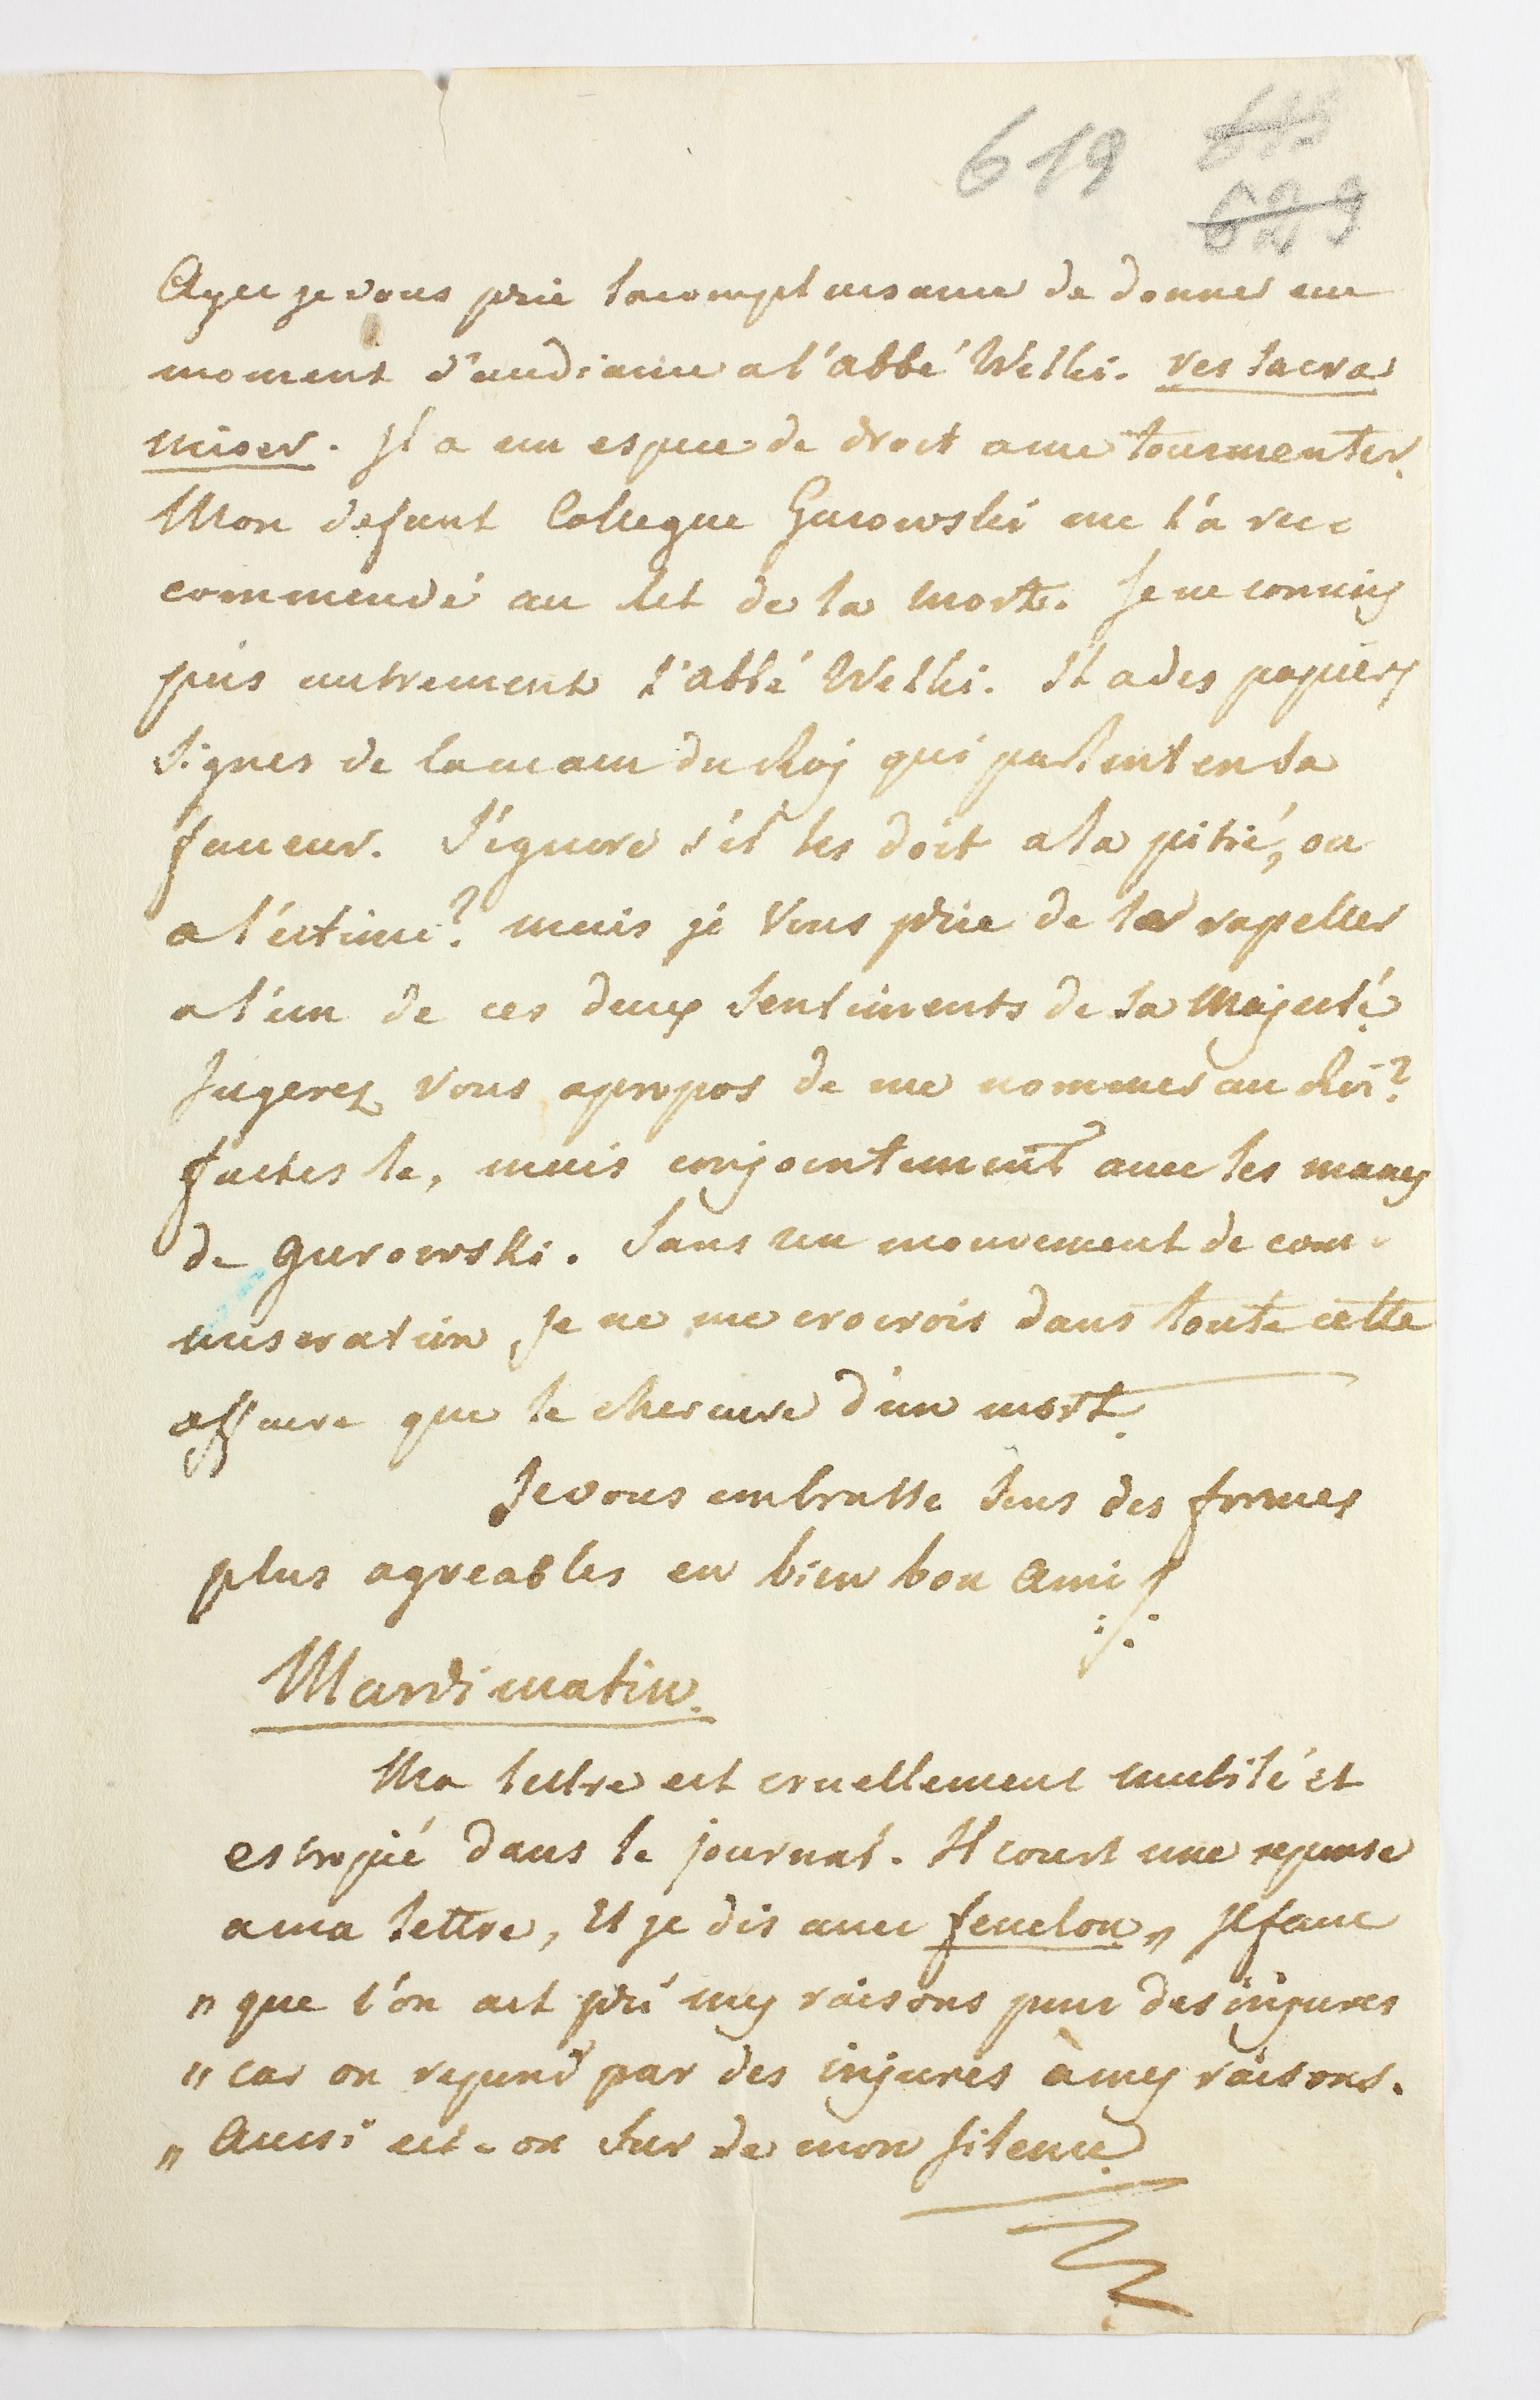 619 618
629
Ayez je vous prie la complaisance de donner un
moment d'audiance a l'abbé Welki. res sacra
miser. Il a un espece de droit a me tourmenter.
Mon defunt Collegue Gurowski me l'a re=
commendé au lit de la mort. Je ne connais
pas autrement l'abbé Welki. Il a des papiers
signes de la main du Roy qui parlent en sa
faveur. J'ignore s'il les doit a la pitié, ou
a l'estime? mais je vous prie de le rapeller
a l'un de ces deux sentiments de sa Majesté.
Jugerez vous apropos de me nommer au Roi?
faites le, mais conjointement avec les manes
de Gurowski. Sans un mouvement de com-
miseration, je ne me croirois dans toute cette
affaire que le chargé d'un mort.
Je vous embrasse sous des formes
plus agreables en bien bon Ami
Mardi matin.
Ma lettre est cruellement mutilé et
estropié dans le journal. Il court une reponse
a ma lettre, et je dis avec fenelon „ Il faut
„ que l'on ait pri mes raisons pour des injures
„ car on repond par des injures à mes raisons.
„ Aussi est-on sur de mon silence.